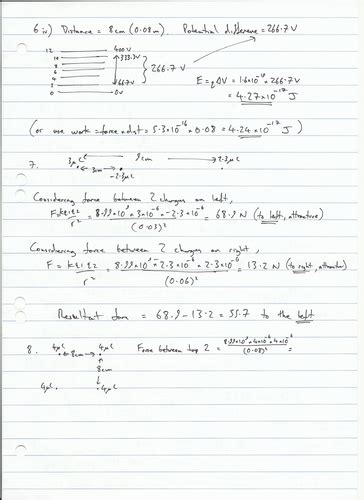 6 iv) Distance = 8cm (0.08m). Potential difference = 266.7V
12 400V
10 333.3V
8
6 266.7V
4
2 66.7V
0 0V
E = qΔV = 1.6x10⁻¹⁹ x 266.7V
= 4.27x10⁻¹⁷ J
(or use work = force x dist = 5.3x10⁻¹⁶ x 0.08 = 4.24x10⁻¹⁷ J)
7. 9cm
3μC 3cm -2.3μC 2.3μC
Considering force between 2 charges on left,
F = kq1q2 / r² = 8.99x10⁹ x 3x10⁻⁶ x -2.3x10⁻⁶ / (0.03)² = 68.9 N (to left, attractive)
Considering force between 2 charges on right,
F = kq1q2 / r² = 8.99x10⁹ x 2.3x10⁻⁶ x 2.3x10⁻⁶ / (0.06)² = 13.2 N (to right, attractive)
Resultant = 68.9 - 13.2 = 55.7 to the left
8. 4μC 8cm 4μC Force between top 2 = 8.99x10⁹ x 4x10⁻⁶ x 4x10⁻⁶ / (0.08)² =
8cm
4μC 4μC